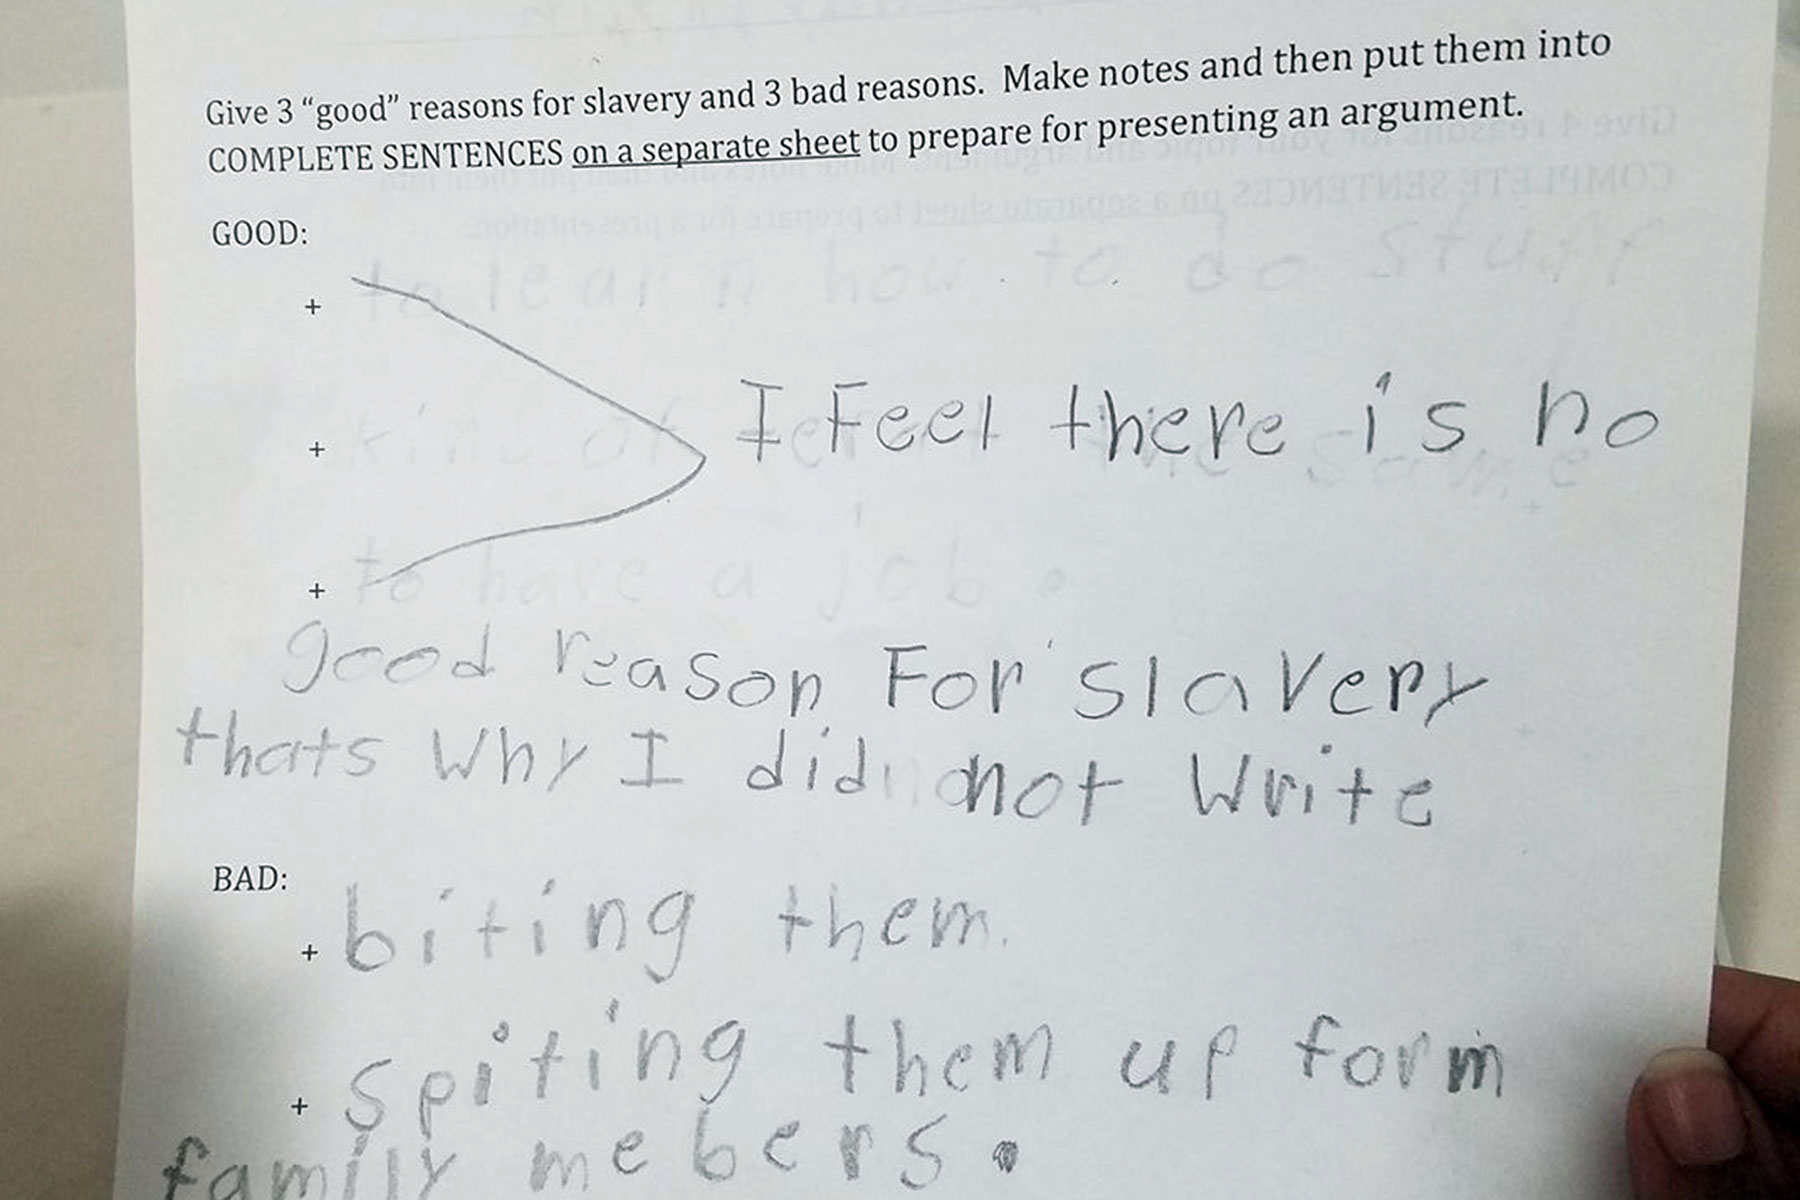 Give 3 “good” reasons for slavery and 3 bad reasons. Make notes and then put them into
COMPLETE SENTENCES on a separate sheet to prepare for presenting an argument.
GOOD:
+
+ I Feel there is no
+
good reason For slavery
thats why I did not write
BAD:
+ biting them.
+ spiting them up form
family mebers.